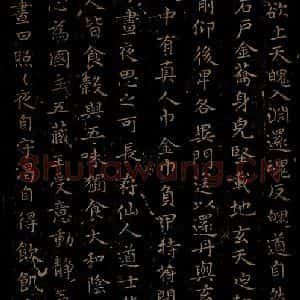 欲上天魄入淵還魂反魄道自然
石戶金籥身完堅載地玄天迫
前仰後卑各異門送以還丹與玄
中有真人巾金巾負甲持符開
晝夜思之可長存仙人道士非
人皆食穀與五味獨食大和陰
為國主五藏王受意動靜
晝日照〻夜自守渴自得飲飢
Shufawang.CN